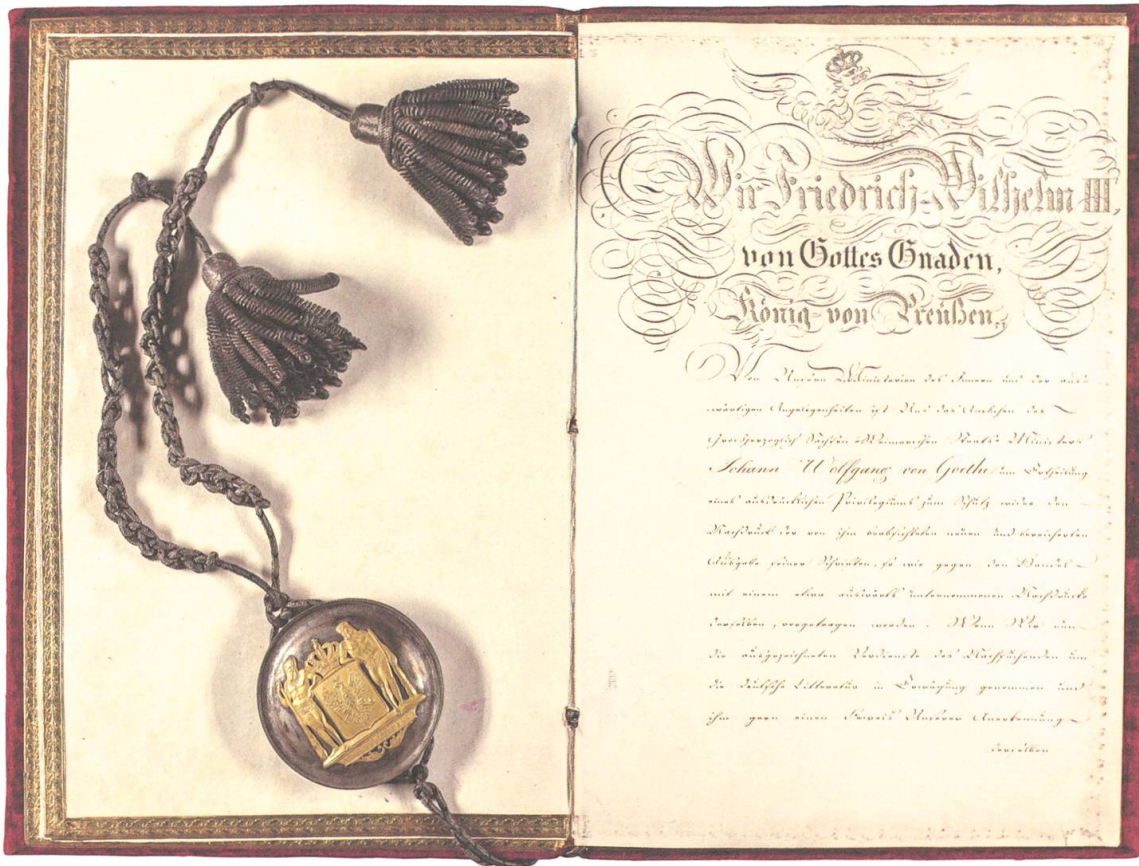 Wir Friedrich-Wilhelm III,
von Gottes Gnaden,
König von Preußen,
Von Unsern Ministerien des Innern und der aus-
wärtigen Angelegenheiten ist Uns das Ansuchen des
Großherzoglich Sachsen-Weimarischen Staats-Ministers
Johann Wolfgang von Goethe um Ertheilung
eines ausdrücklichen Privilegiums zum Schutz wider den
Nachdruck der von ihm beabsichteten neuen und bereicherten
Ausgabe seiner Schriften, so wie gegen den Handel
mit einem etwa auswärts unternommenen Nachdrucke
derselben, vorgetragen worden. Wenn Wir nun
die ausgezeichneten Verdienste des Nachsuchenden um
die deutsche Litteratur in Erwägung genommen und
ihm gern einen Beweis Unserer Anerkennung
derselben